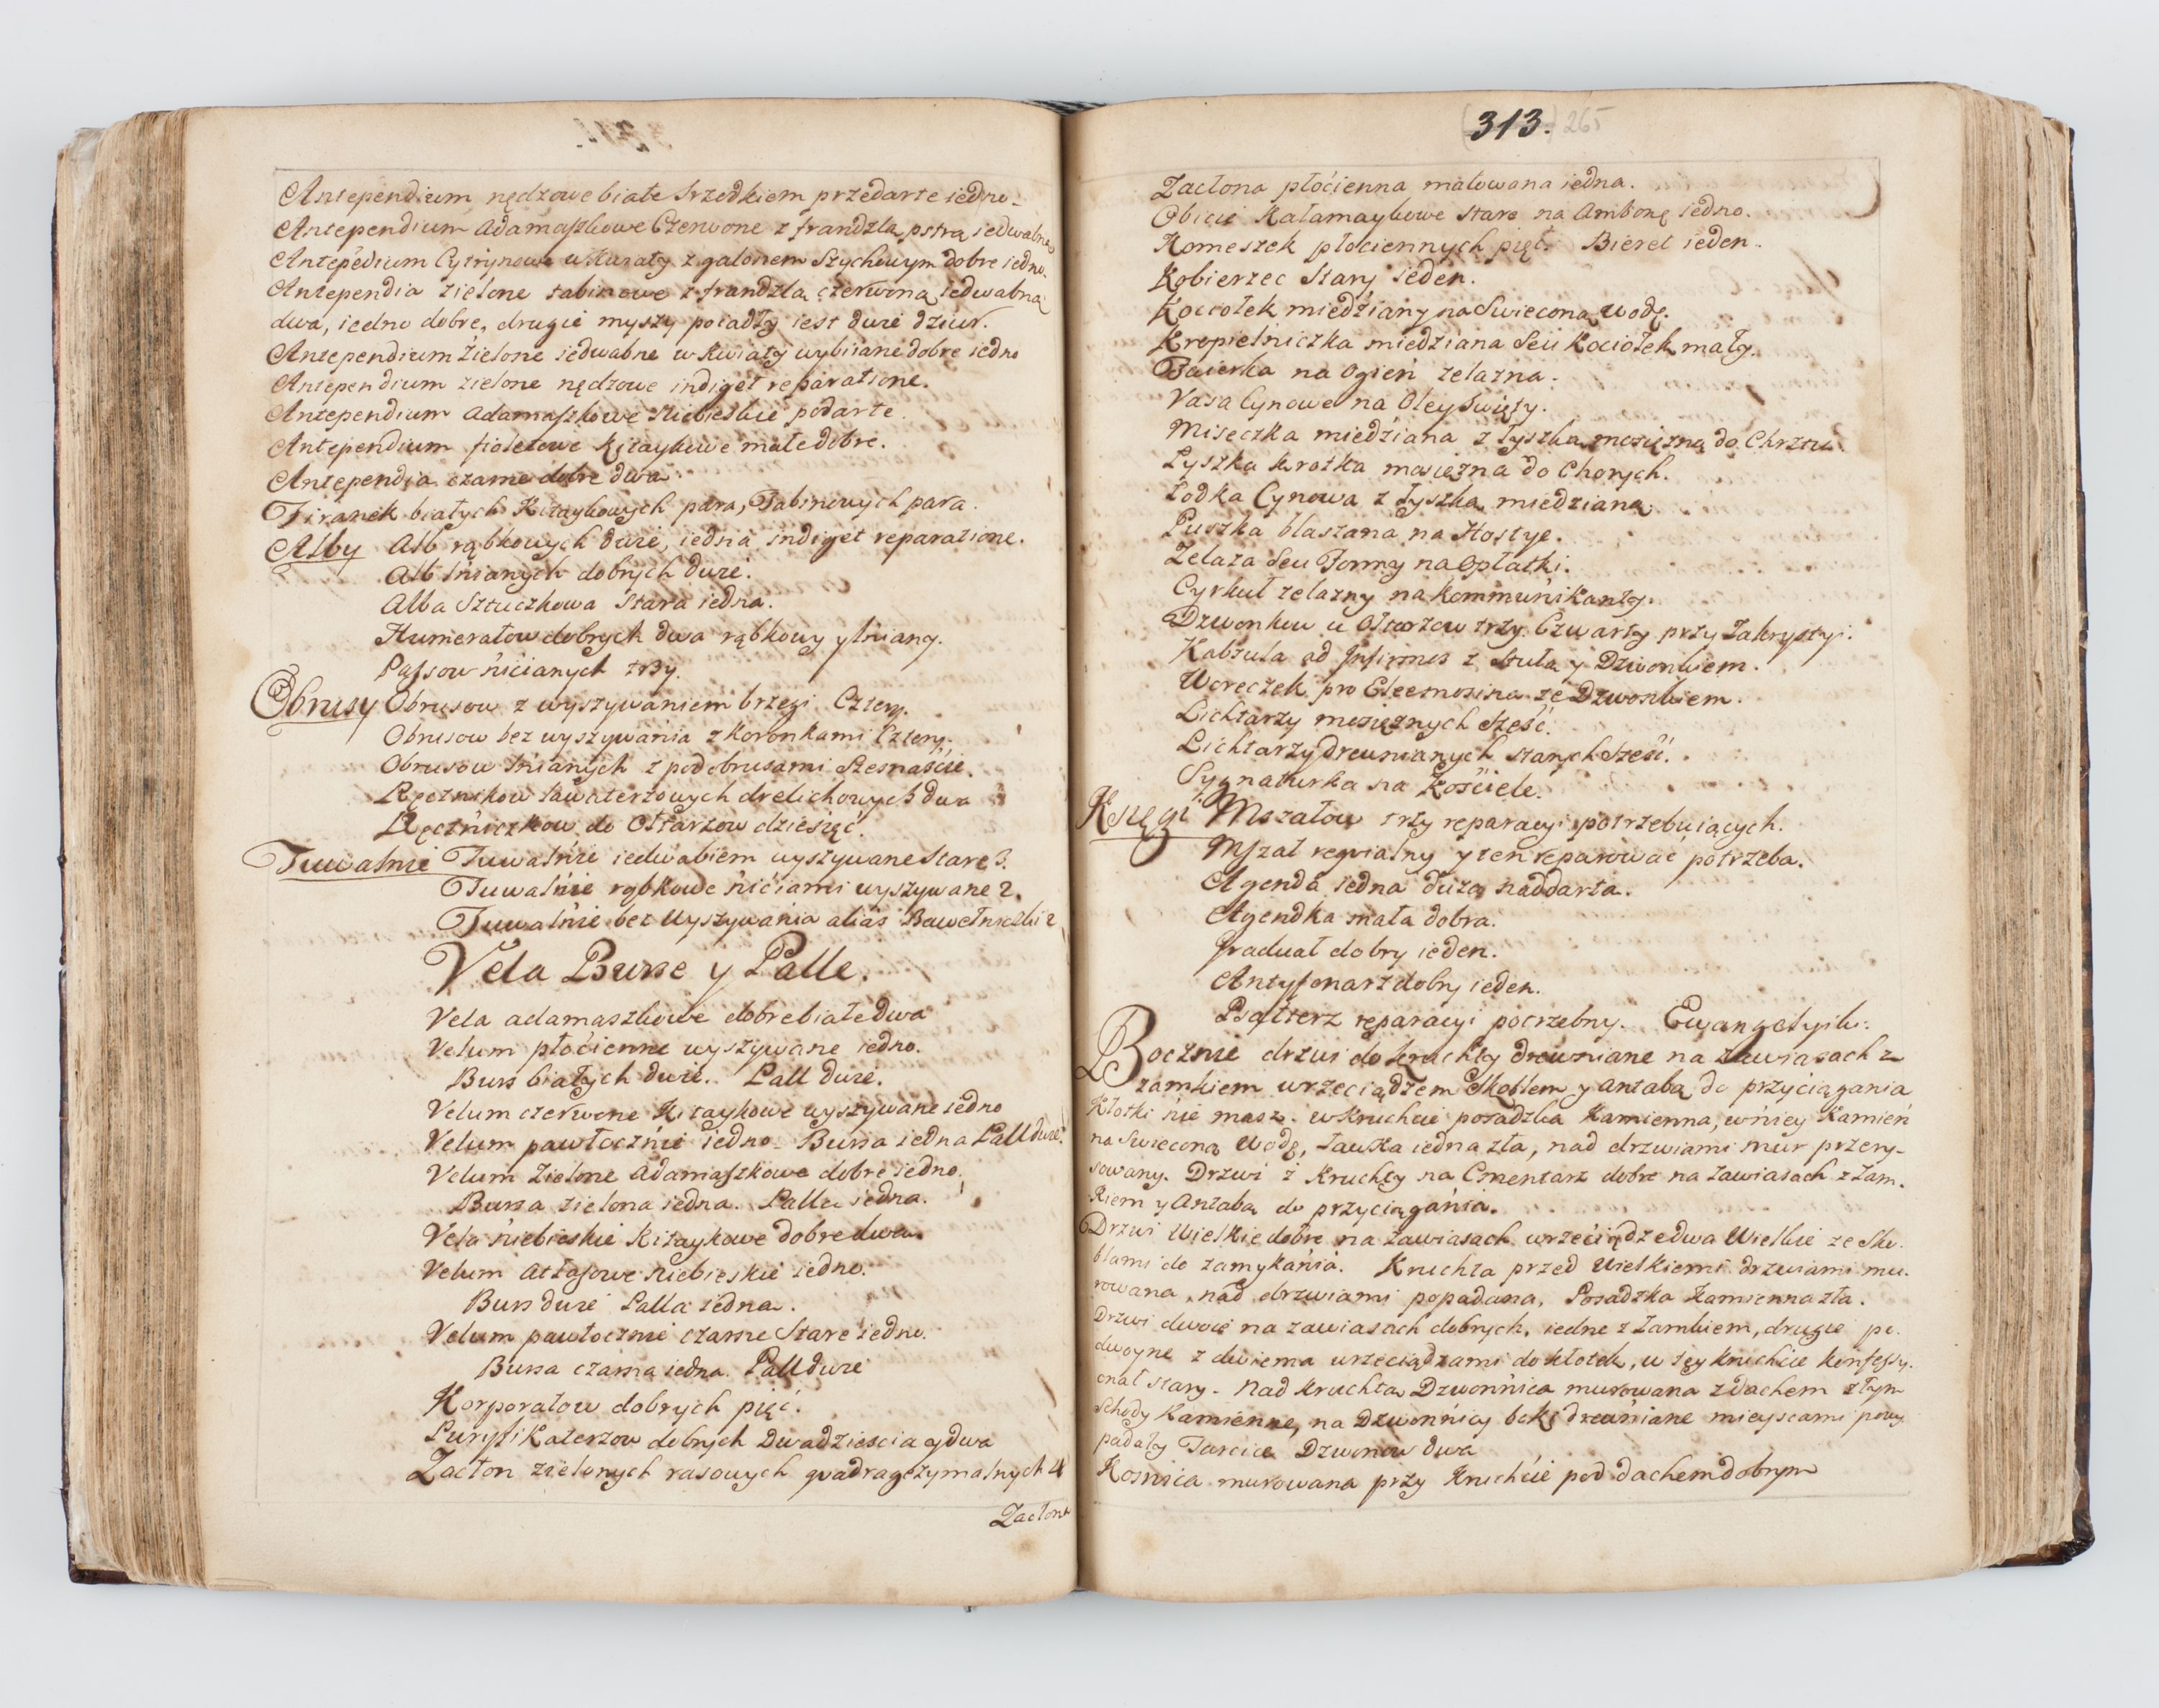 Antependium nędzowe białe srzodkiem przedarte iedno.
Antependium Adamaszkowe Czerwone z frandzlą pstrą iedwabne
Antepedium Cytrynowe w kwiaty z galonem Szychowym dobre iedno.
Antependia zielone tabinowe z frandzlą czerwoną iedwabną
dwa, iedno dobre, drugie myszy poiadły iest dwie dziur.
Antependium zielone iedwabne w kwiaty wybiiane dobre iedno
Antependium zielone nędzowe indiget reparatione.
Antependium Adamaszkowe Niebieskie podarte.
Antependium fioletowe kitaykowe małe dobre.
Antependia czarne dobre dwa.
Firanek białych Kitaykowych para, Tabinowych para.
Alby Alb rąbkowych dwie, iedna indiget reparatione.
Alb lnianych dobrych dwie.
Alba Sztuczkowa Stara iedna.
Humerałow dobrych dwa rąbkowy y lniany.
Passow nicianych trzy.
Obrusy Obrusow z wyszywaniem brzegi Cztery.
Obrusow bez wyszywania z koronkami Cztery.
Obrusow lnianych z podobrusami Szesnaście.
Ręcznikow lawaterzowych drelichowych dwa
Ręczniczkow do Ołtarzow dziesięć.
Tuwalnie Tuwalnie iedwabiem wyszywane Stare 3.
Tuwalnie rąbkowe nićiami wyszywane 2.
Tuwalnie bez Wyszywania alias Bawełniczki 2
Vela Burse y Palle.
Vela adamaszkowe dobre białe dwa
Velum płocienne wyszywane iedno.
Burs białych dwie. Pall dwie.
Velum czerwone Kitaykowe wyszywane iedno
Velum pawłocznie iedno. Bursa iedna Pall dwie.
Velum Zielone Adamaszkowe dobre iedno.
Bursa zielona iedna. Palla iedna.
Vela niebieskie Kitaykowe dobre dwa.
Velum Atłasowe niebieskie iedno.
Burs dwie Palla iedna.
Velum pawłocznie czarne Stare iedno.
Bursa czarna iedna. Pall dwie
Korporałow dobrych pięć.
Puryfikaterzow dobrych Dwadzieścia y dwa
Zacłon zielonych rasowych quadragezymalnych 4
Zacłona
313. 265
Zacłona płócienna malowana iedna.
Obicie Kałamaykowe Stare na Ambonę iedno.
Komeszek płóciennych pięć. Bieret ieden.
Kobierzec Stary ieden.
Kociołek miedziany na Swieconą Wodę.
Kropielniczka miedziana Seu Kociołek mały.
Faierka na Ogień zelazna.
Vasa Cynowe na Oley Swięty.
Miseczka miedziana z łyszką mosiężną do Chrztu.
Łyszka krotka mosiężna do Chorych.
Łodka Cynowa z łyszką miedzianą.
Puszka blaszana na Hostye.
Zelaza Seu Formy na Opłatki.
Cyrkuł zelazny na Kommunikanty.
Dzwonkow u Ołtarzow trzy. Czwarty przy Zakrystyi.
Kabzula ad Infirmos z Stułą y Dzwonkiem.
Woreczek pro Eleemosina ze Dzwonkiem.
Lichtarzy mosiężnych Sześć.
Lichtarzy drewnianych starych Sześć.
Sygnaturka na Kościele.
Księgi Mszałow trzy reparacyi potrzebuiących.
Mszał requialny y ten reparować potrzeba.
Agenda iedna duża naddarta.
Agendka mała dobra.
Graduał dobry ieden.
Antyfonarz dobry ieden.
Psałterz reparacyi potrzebny.
Bocznie drzwi do kruchty drewniane na zawiasach z
zamkiem wrzeciądzem Skoblem y antabą do przyciągania
Kłotki nie masz. w kruchcie posadzka Kamienna, w niey Kamień
na Swieconą Wodę, Ławka iedna zła, nad drzwiami mur przery-
sowany. Drzwi z Kruchty na Cmentarz dobre na zawiasach z zam-
kiem y Antabą do przyciągania.
Drzwi Wielkie dobre na zawiasach wrzeciądze dwa Wielkie ze Sko-
blami do zamykania. Kruchta przed Wielkiemi drzwiami mu-
rowana, nad drzwiami popadana, Posadzka Kamienna zła.
Drzwi dwoie na zawiasach dobrych, iedne z Zamkiem, drugie po-
dwoyne z dwiema wrzeciądzami do kłotek, w tey kruchcie konfessy-
onał stary. Nad kruchtą Dzwonnica murowana z dachem złym
Schody Kamienne, na Dzwonnicy boki drewniane mieyscami powy
padały Tarcice Dzwonow dwa
Kosnica murowana przy Kruchcie pod dachem dobrym